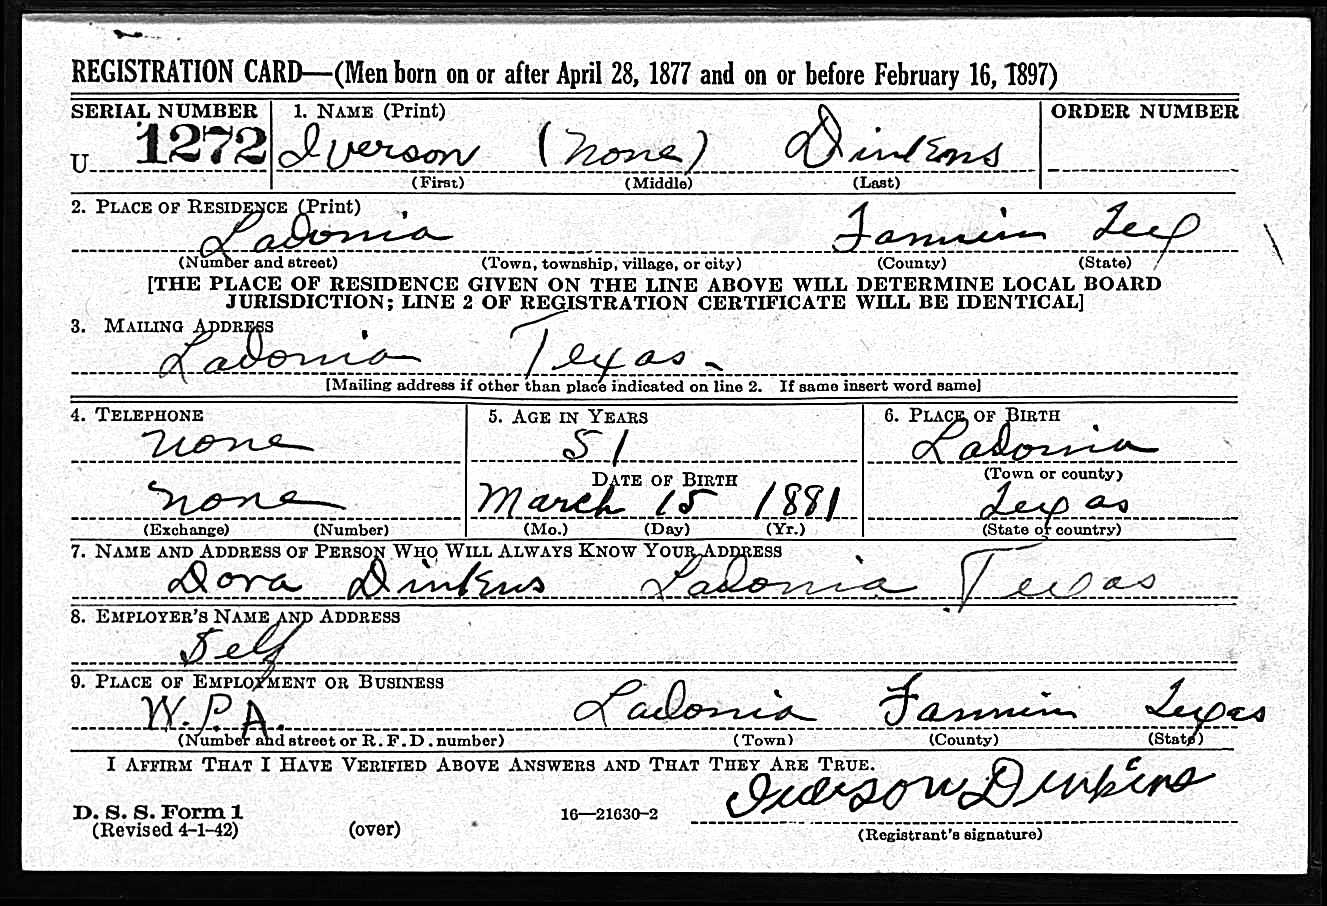 REGISTRATION CARD—(Men born on or after April 28, 1877 and on or before February 16, 1897)
SERIAL NUMBER 1. NAME (Print) ORDER NUMBER
U 1272 Iverson (None) Dinkens
(First) (Middle) (Last)
2. PLACE OF RESIDENCE (Print)
Ladonia Fannin Tex
(Number and street) (Town, township, village, or city) (County) (State)
[THE PLACE OF RESIDENCE GIVEN ON THE LINE ABOVE WILL DETERMINE LOCAL BOARD
JURISDICTION; LINE 2 OF REGISTRATION CERTIFICATE WILL BE IDENTICAL]
3. MAILING ADDRESS
Ladonia Texas
[Mailing address if other than place indicated on line 2. If same insert word same]
4. TELEPHONE 5. AGE IN YEARS 6. PLACE OF BIRTH
none 51 Ladonia
DATE OF BIRTH (Town or county)
none March 15 1881 Texas
(Exchange) (Number) (Mo.) (Day) (Yr.) (State or country)
7. NAME AND ADDRESS OF PERSON WHO WILL ALWAYS KNOW YOUR ADDRESS
Dora Dinkens Ladonia Texas
8. EMPLOYER'S NAME AND ADDRESS
Self
9. PLACE OF EMPLOYMENT OR BUSINESS
W.P.A. Ladonia Fannin Texas
(Number and street or R. F. D. number) (Town) (County) (State)
I AFFIRM THAT I HAVE VERIFIED ABOVE ANSWERS AND THAT THEY ARE TRUE.
Iverson Dinkens
D. S. S. Form 1 16—21630-2
(Revised 4-1-42) (over) (Registrant's signature)